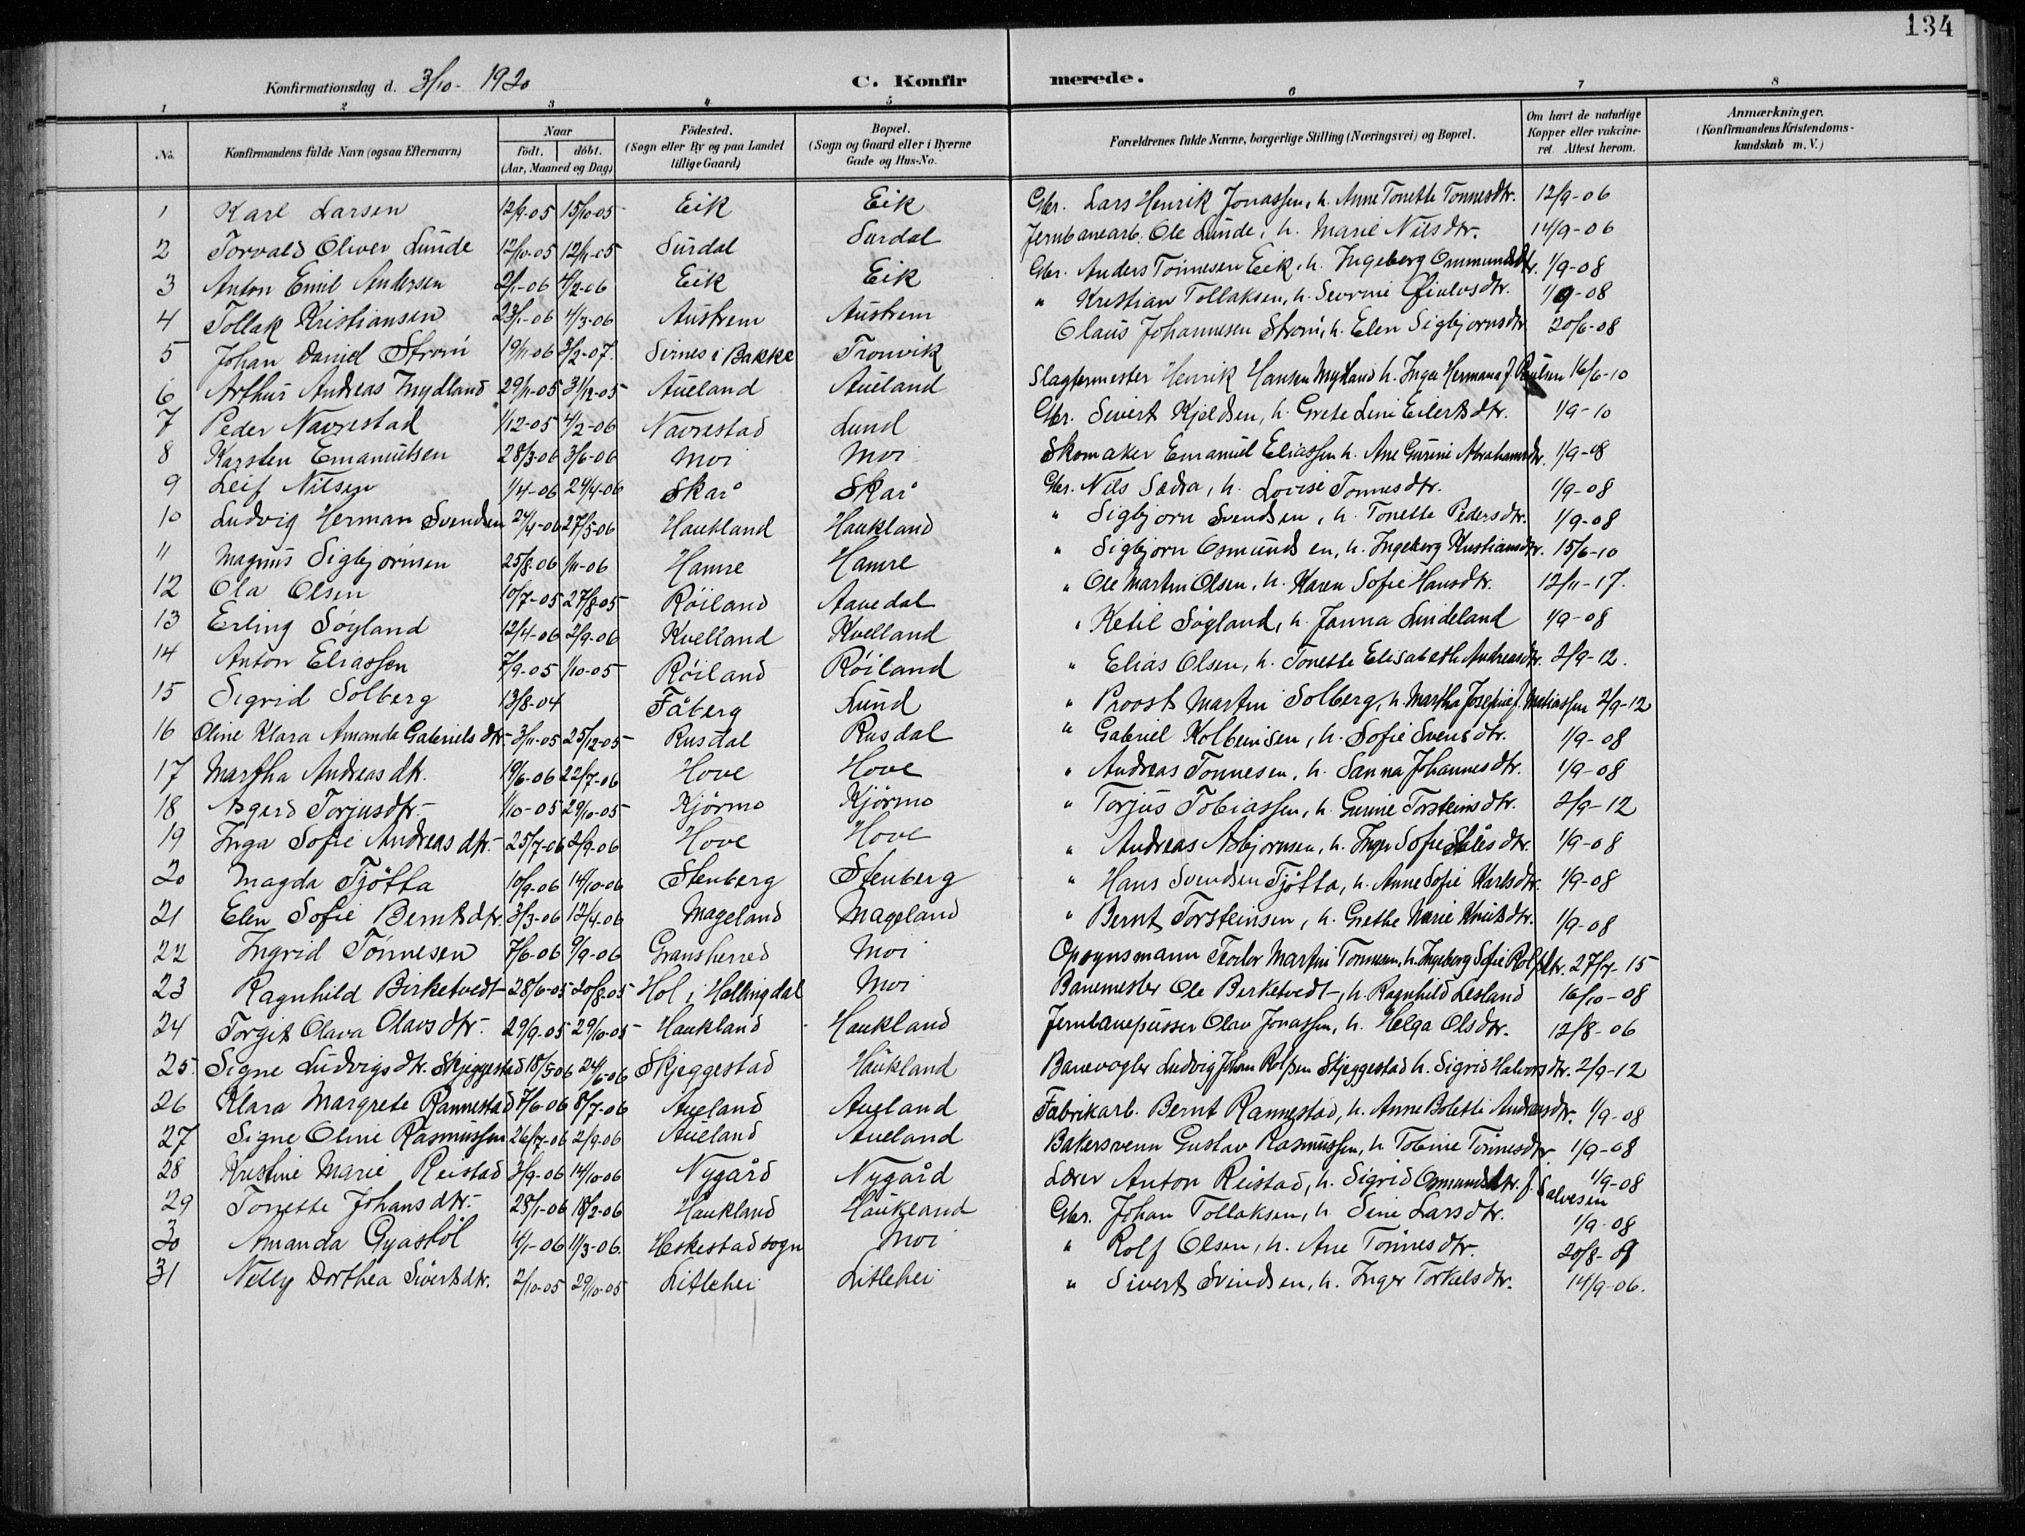 134
Konfirmationsdag d. 3/10- 1920 C. Konfirmerede.
1 2 3 4 5 6 7 8
No. Konfirmandens fulde Navn (ogsaa Efternavn) Naar födt. döbt. (Aar, Maaned og Dag) Födested. (Sogn eller By og paa Landet tillige Gaard) Bopæl. (Sogn og Gaard eller i Byerne Gade og Hus-No. Forældrenes fulde Navne, borgerlige Stilling (Næringsvei) og Bopæl. Om havt de naturlige Kopper eller vakcineret Attest herom. Anmærkninger. (Konfirmandens Kristendomskundskab m. V.)
1 Karl Larsen 12/9-05 15/10-05 Eik Eik Gbr. Lars Henrik Jonassen, h. Anne Tonette Tonnesdtr. 12/9-06
2 Torvald Oliver Lunde 12/10-05 12/11-05 Surdal Surdal Jernbanearb. Ole Lunde, h. Marie Nilsdtr. 14/9-06
3 Anton Emil Andersen 2/1-06 4/2-06 Eik Eik Gbr. Anders Tönnesen Eik, h. Ingeborg Ommundsdtr. 1/9-08
4 Tollak Kristiansen 23/1-06 4/3-06 Austrem Austrem " Kristian Tollaksen, h. Severine 1/9-08
5 Johan Daniel Strøm 19/11-06 3/2-07. Sirnes i Bakke Tronvik Olaus Johannesen Strøm, h. Elen Sigbjornsdtr 20/6-08
6 Arthur Andreas Mydland 29/11-05 31/12-05 Aueland Aueland Slagtermester Henrik Hansen Mydland h. Inga Hermana f. Paulsen 16/6-10
7 Peder Navrestad 1/12-05 4/2-06 Navrestad Lund Gbr. Sivert Kjeldsen, h. Grete Lini Eilertsdtr. 1/9-10
8 Karsten Emanuelsen 28/3-06 3/6-06 Moi Moi Skomaker Emanuel Eliassen h. Ane Gurine Abrahamsdtr. 1/9-08
9 Leif Nilsen 1/4-06 24/4-06 Skår Skår Gbr. Nils Sædra, h. Lovise Tonnesdtr. 1/9-08
10 Ludvig Herman Svendsen 24/4-06 27/5-06 Haukland Haukland " Sigbjorn Svendsen, h. Tonette Pedersdtr. 1/9-08
11 Magnus Sigbjörnsen 25/8-06 1/11-06 Hamre Hamre " Sigbjorn Osmundsen, h. Ingeborg Kristiansdtr. 15/6-10
12 Ola Olsen 10/7-05 27/8-05 Röiland Aavedal " Ole Martin Olsen, h. Karen Sofie Hansdtr. 12/11-17.
13 Erling Søyland 12/4-06 2/9-06 Kvelland Kvelland " Ketil Søgland, h. Janna Lindeland 1/9-08
14 Anton Eliassen 7/9-05 1/10-05 Röiland Röiland " Elias Olsen, h. Tonette Elisabeth Andreasdtr. 2/9-12.
15 Sigrid Solberg 13/8-04 Fåberg Lund " Proost Martin Solberg, h. Martha Josefine f. Matiassen 2/9-12
16 Oline Klara Amanda Gabrielsdtr. 3/11-05 25/12-05 Rusdal Rusdal " Gabriel Kolbeinsen, h. Sofie Svensdtr. 1/9-08
17 Martha Andreasdtr. 19/6-06 22/7-06 Hove Hove " Andreas Tonnesen, h. Sanna Johannesdtr. 1/9-08
18 Asgerd Torjusdtr. 1/10-05 29/10-05 Kjörmo Kjörmo " Torjus Tobiassen, h. Gurine Torsteinsdtr. 2/9-12
19 Inga Sofie Andreasdtr. 25/7-06 2/9-06 Hove Hove " Andreas Asbjornsen, h. Inger Sofie 1/9-08
20 Magda Tjötta 10/9-06 14/10-06 Stenberg Stenberg " Hans Svendsen Tjötta, h. Anne Sofie Karlsdtr. 1/9-08
21 Elen Sofie Berntsdtr. 3/3-06 12/4-06 Mageland Mageland " Bernt Torsteinsen, h. Grethe Marie Knutsdtr. 1/9-08
22 Ingrid Tönnesen 7/6-06 9/9-06 Gransherred Moi Opsynsmann Teodor Martin Tonnesen, h. Ingeborg Sofie Rolfsdtr. 27/7-15
23 Ragnhild Birketvedt 28/6-05 20/8-05 Hol i Hallingdal Moi Banemester Ole Birketvedt, h. Ragnhild Lesland 16/10-08
24 Torgit Olava Olavsdtr. 29/9-05 29/10-05 Haukland Haukland Jernbanepusser Olav Jonassen, h. Helga Olsdtr. 12/8-06
25. Signe Ludvigsdtr. Skjeggestad 18/5-06 24/6-06 Skjeggestad Haukland Banevogter Ludvig Johan Rolfsen Skjeggestad h. Sigrid Halvorsdtr. 2/9-12
26 Klara Margrete Rannestad 7/6-06 8/7-06 Aueland Aueland Fabrikarb. Bernt Rannestad, h. Anne Bolette Andreasdtr. 1/9-08
27 Signe Oline Rasmussen 26/7-06 2/9-06 Aueland Aueland Bakersvenn Gustav Rasmussen, h. Tobine Tönnesdtr. 1/9-08
28 Kristine Marie Reistad 3/9-06 14/10-06 Nygård Nygård Lærer Anton Reistad, h. Sigrid Osmundsdtr. f. Salvesen 1/9-08
29 Tonette Johansdtr. 28/1-06 18/2-06 Haukland Haukland Gbr. Johan Tollaksen, h. Sine Larsdtr. 1/9-08
30 Amanda Gyastöl 4/1-06 11/3-06. Heskestad sogn Moi " Rolf Olsen, h. Ane Tönnesdtr. 20/8-09
31 Nelly Dorthea Sivertsdtr. 2/10-05 29/10-05 Litlehei Litlehei " Sivert Svendsen, h. Inger Torkelsdtr. 14/9-06.